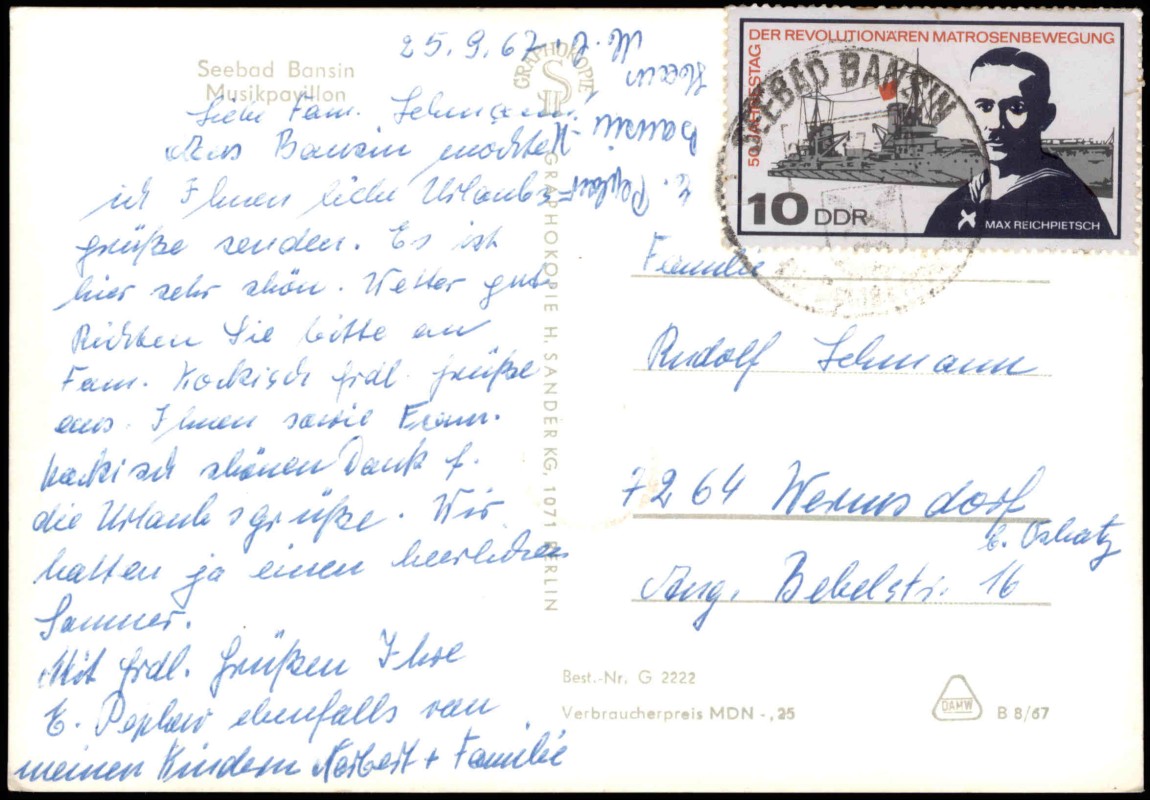 Seebad Bansin
Musikpavillon
25.9.67
Liebe Fam. Lehmann!
Aus Bansin möchte
ich Ihnen liebe Urlaubs
grüße senden. Es ist
hier sehr schön. Wetter gut.
Richten Sie bitte an
Fam. Kockisch frdl. Grüße
aus. Ihnen sowie Fam.
Kockisch schönen Dank f.
die Urlaubsgrüße. Wir
hatten ja einen herrlichen
Sommer.
Mit frdl. Grüßen Ihre
E. Peplow ebenfalls von
meinen Kindern Norbert + Familie
E. Peplow
Bansin
GRAPHOKOPIE
GRAPHOKOPIE H. SANDER KG, 1071 BERLIN
50. JAHRESTAG DER REVOLUTIONÄREN MATROSENBEWEGUNG
10 DDR
MAX REICHPIETSCH
SEEBAD BANSIN
Familie
Rudolf Lehmann
7264 Wermsdorf
b. Oschatz
Aug. Bebelstr. 16
Best.-Nr. G 2222
Verbraucherpreis MDN -,25
DAMW
B 8/67